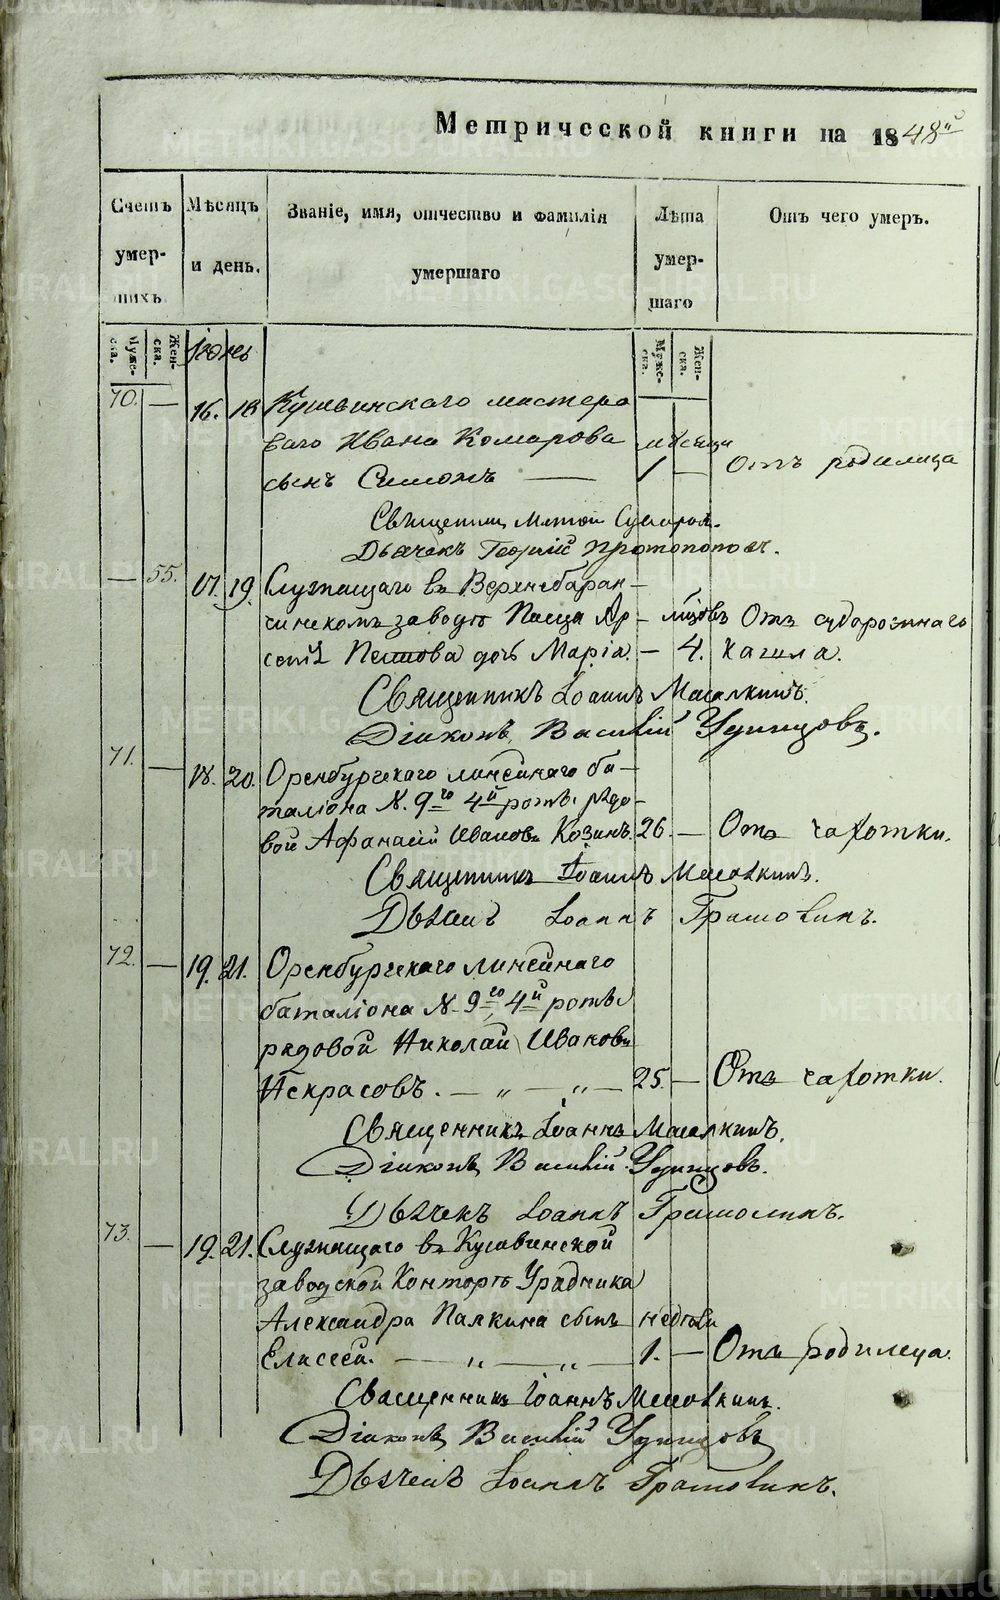 Метрической книги на 1848й
Счетъ умершихъ.
Мѣсяцъ и день.
Званіе, имя, отчество и фамилія умершаго
Лѣта умершаго
Отъ чего умеръ.
Мужеска. Женска. Мужеска. Женска.
70. — 16. 18 Кушвинскаго мастеро
ваго Ивана Комарова мѣсяца
сынъ Симонъ — 1 — Отъ родимца
Священник
Дьячекъ Георгій Протопоповъ.
— 55. 17. 19. Служащаго въ Верхнебаран-
чинскомъ заводѣ Писца Ар- — лѣтъ Отъ судорожнаго
сенія дочь Марія. — 4. Кашля.
Священникъ Іоаннъ Масалкинъ.
Діаконъ Василій Удинцовъ.
71. — 18. 20. Оренбургскаго линейнаго ба-
таліона №. 9го 4й роты рядо-
вой Афанасій Ивановъ Козинъ. 26. — Отъ чахотки.
Священникъ Іоаннъ Масалкинъ.
Дьячекъ Іоаннъ
72. — 19. 21. Оренбургскаго линейнаго
баталіона № 9го 4й роты
рядовой Николай Ивановъ
Некрасовъ. — „ — „ — 25. — Отъ чахотки.
Священникъ Іоаннъ Масалкинъ.
Діаконъ Василій Удинцовъ.
Дьячекъ Іоаннъ
73. — 19. 21. Служащаго въ Кушвинской
заводской Конторѣ Урядника
Александра Палкина сынъ недѣли
Елисей. — „ — „ — 1. — Отъ родимца.
Священникъ Іоаннъ Масалкинъ.
Діаконъ Василій Удинцовъ
Дьячекъ Іоаннъ
METRIKI.GASO-URAL.RU